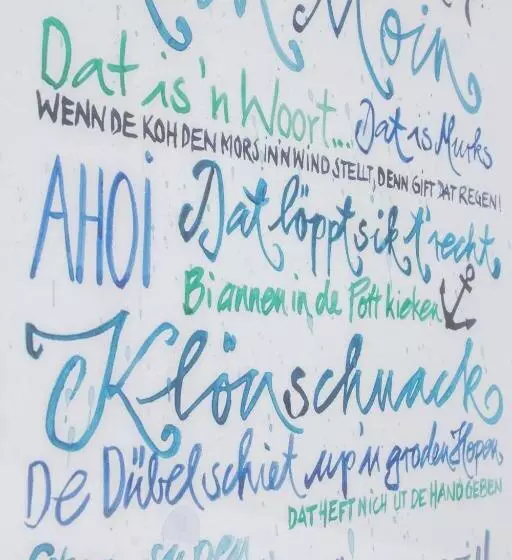 Moin
Dat is 'n Woort...
Dat is Murks
WENN DE KOH DEN MORS IN'N WIND STELLT, DENN GIFT DAT REGEN!
AHOI
Dat löppt sik t'recht
Bi annen in de Pott kieken
Klönschnack
De Dübel schiet up'n groden Hopen
DAT HEFT NICH UT DE HAND GEBEN